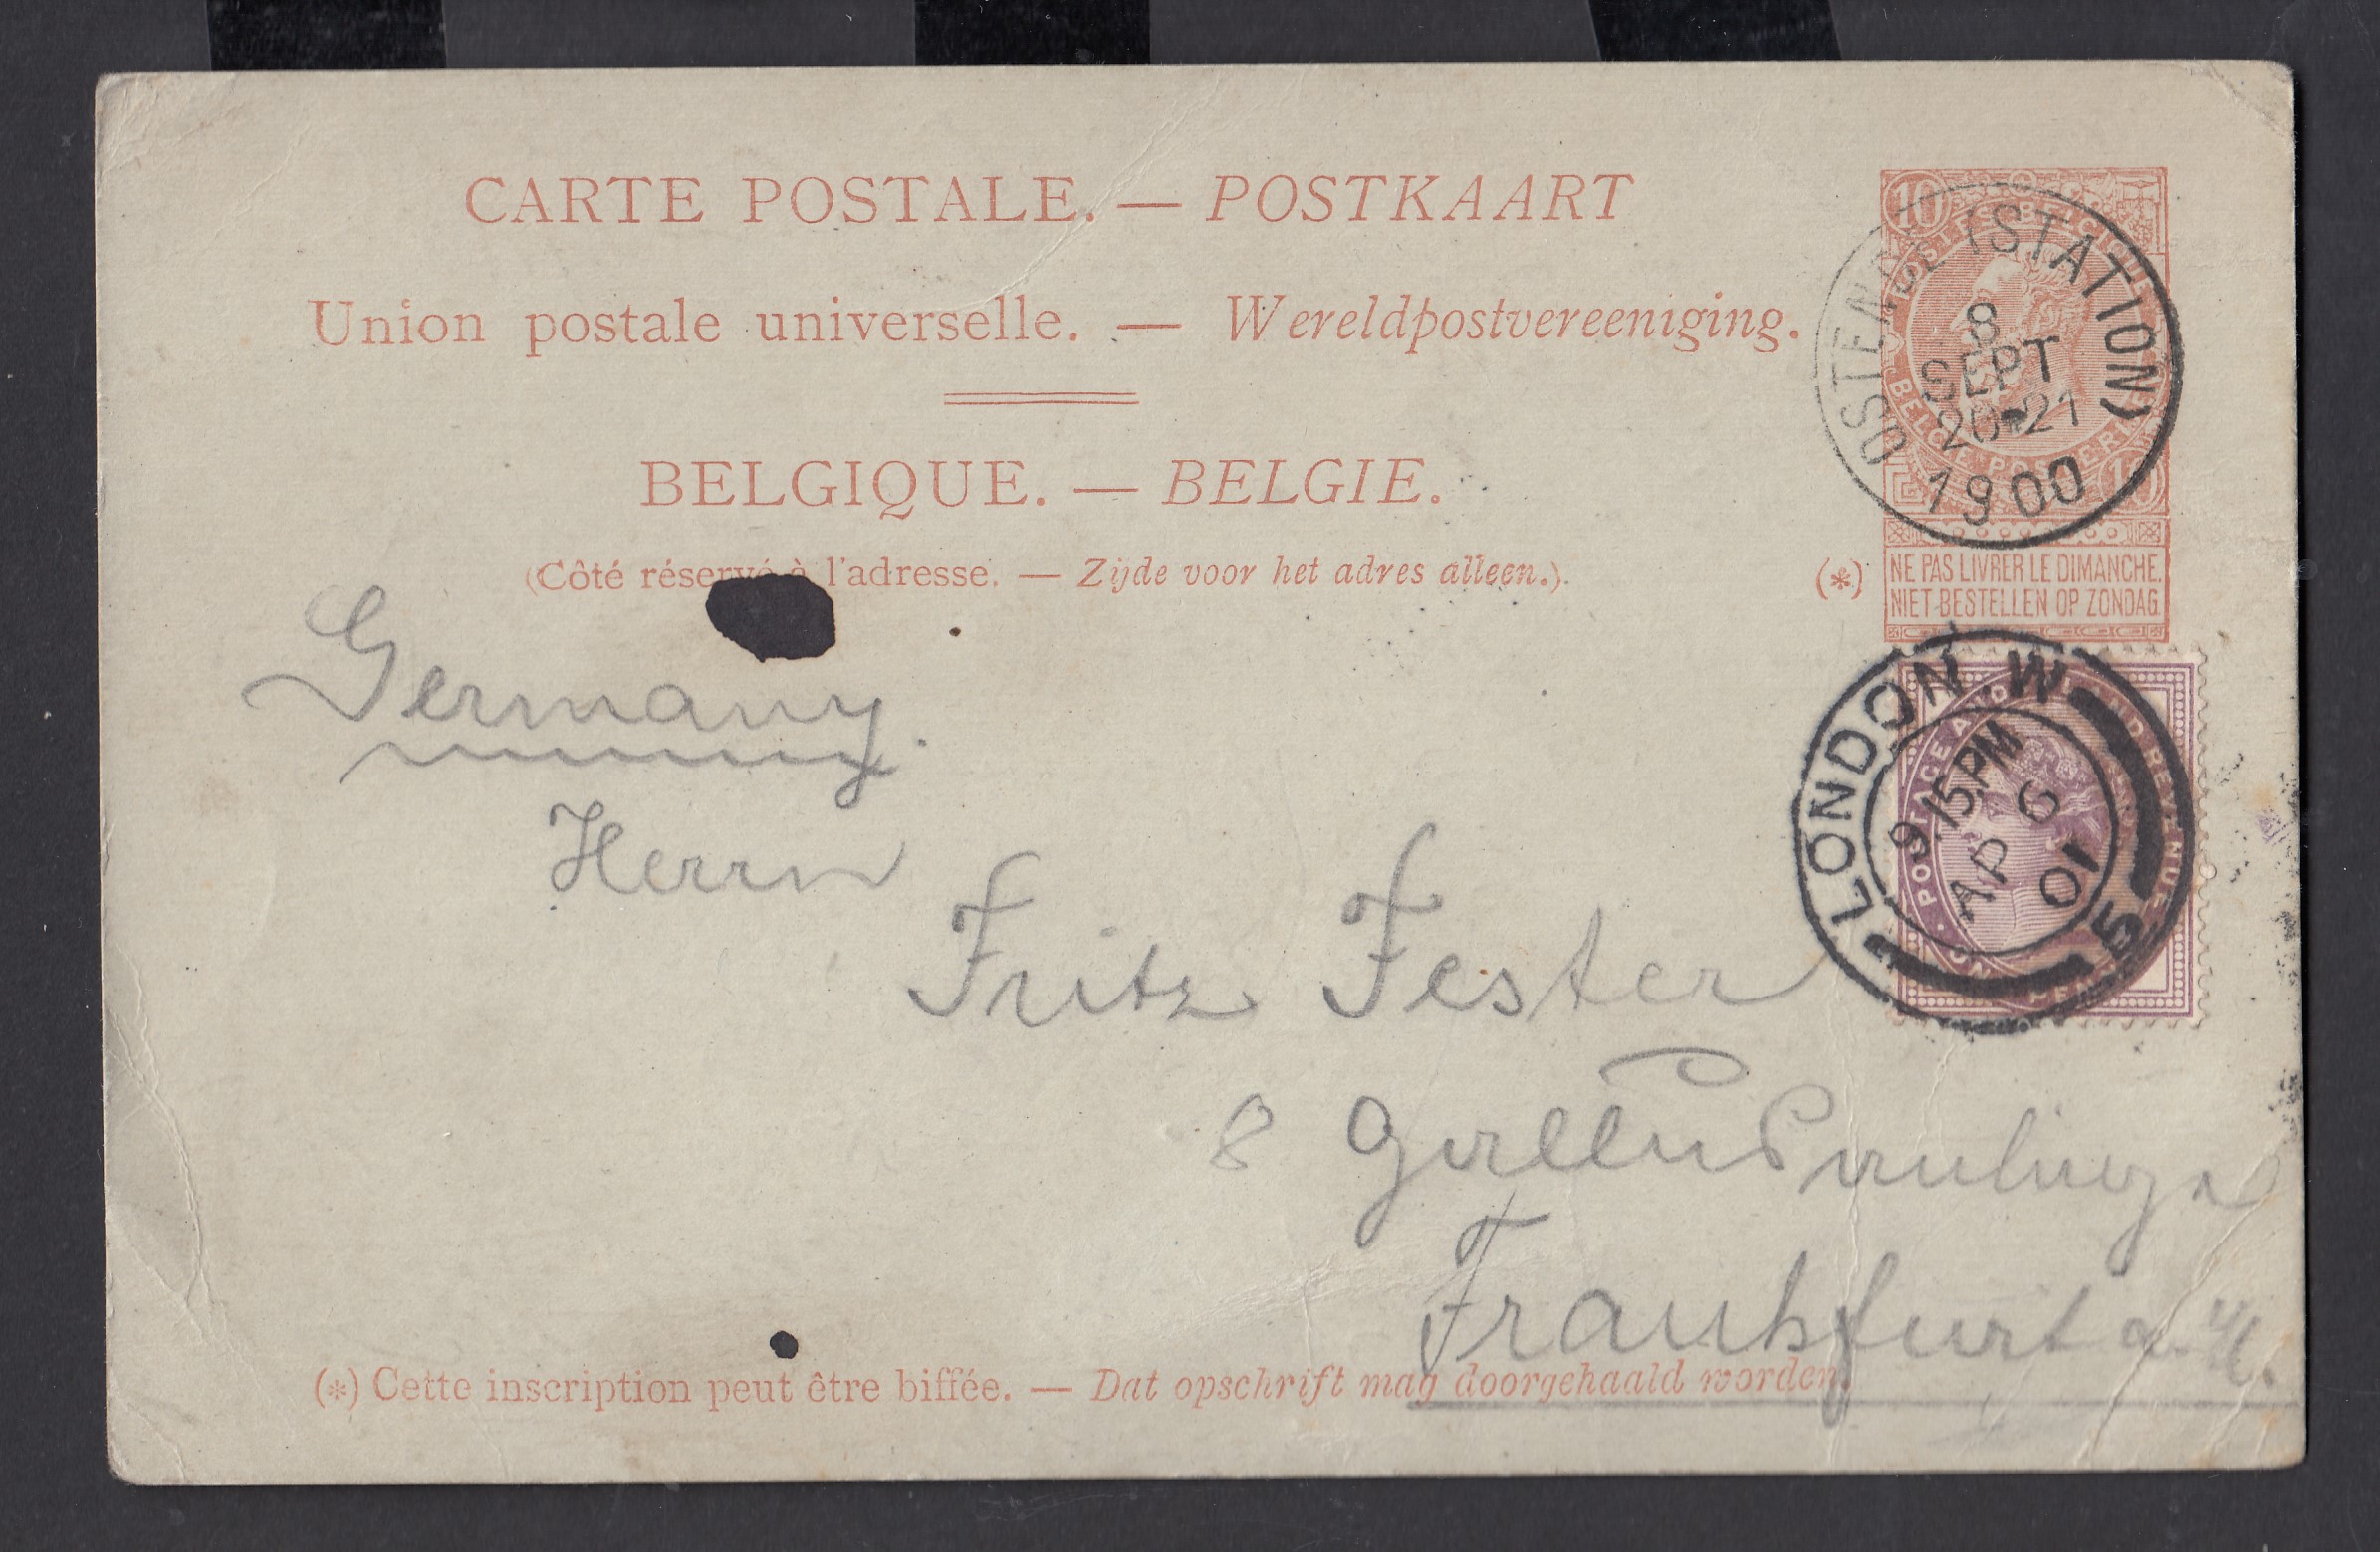 CARTE POSTALE. — POSTKAART
Union postale universelle. — Wereldpostvereeniging.
BELGIQUE. — BELGIE.
(Côté réservé à l'adresse. — Zijde voor het adres alleen.)
10
POSTES BELGIQUE
BELGIE POSTERIJEN
10
OSTENDE (STATION)
8
SEPT
20-21
1900
(*) NE PAS LIVRER LE DIMANCHE.
NIET BESTELLEN OP ZONDAG.
POSTAGE AND INLAND REVENUE
ONE PENNY
LONDON.W
9.15.PM
AP 6
01
5
Germany.
Herrn
Fritz Fester
8
Frankfurt a. M.
(*) Cette inscription peut être biffée. — Dat opschrift mag doorgehaald worden.